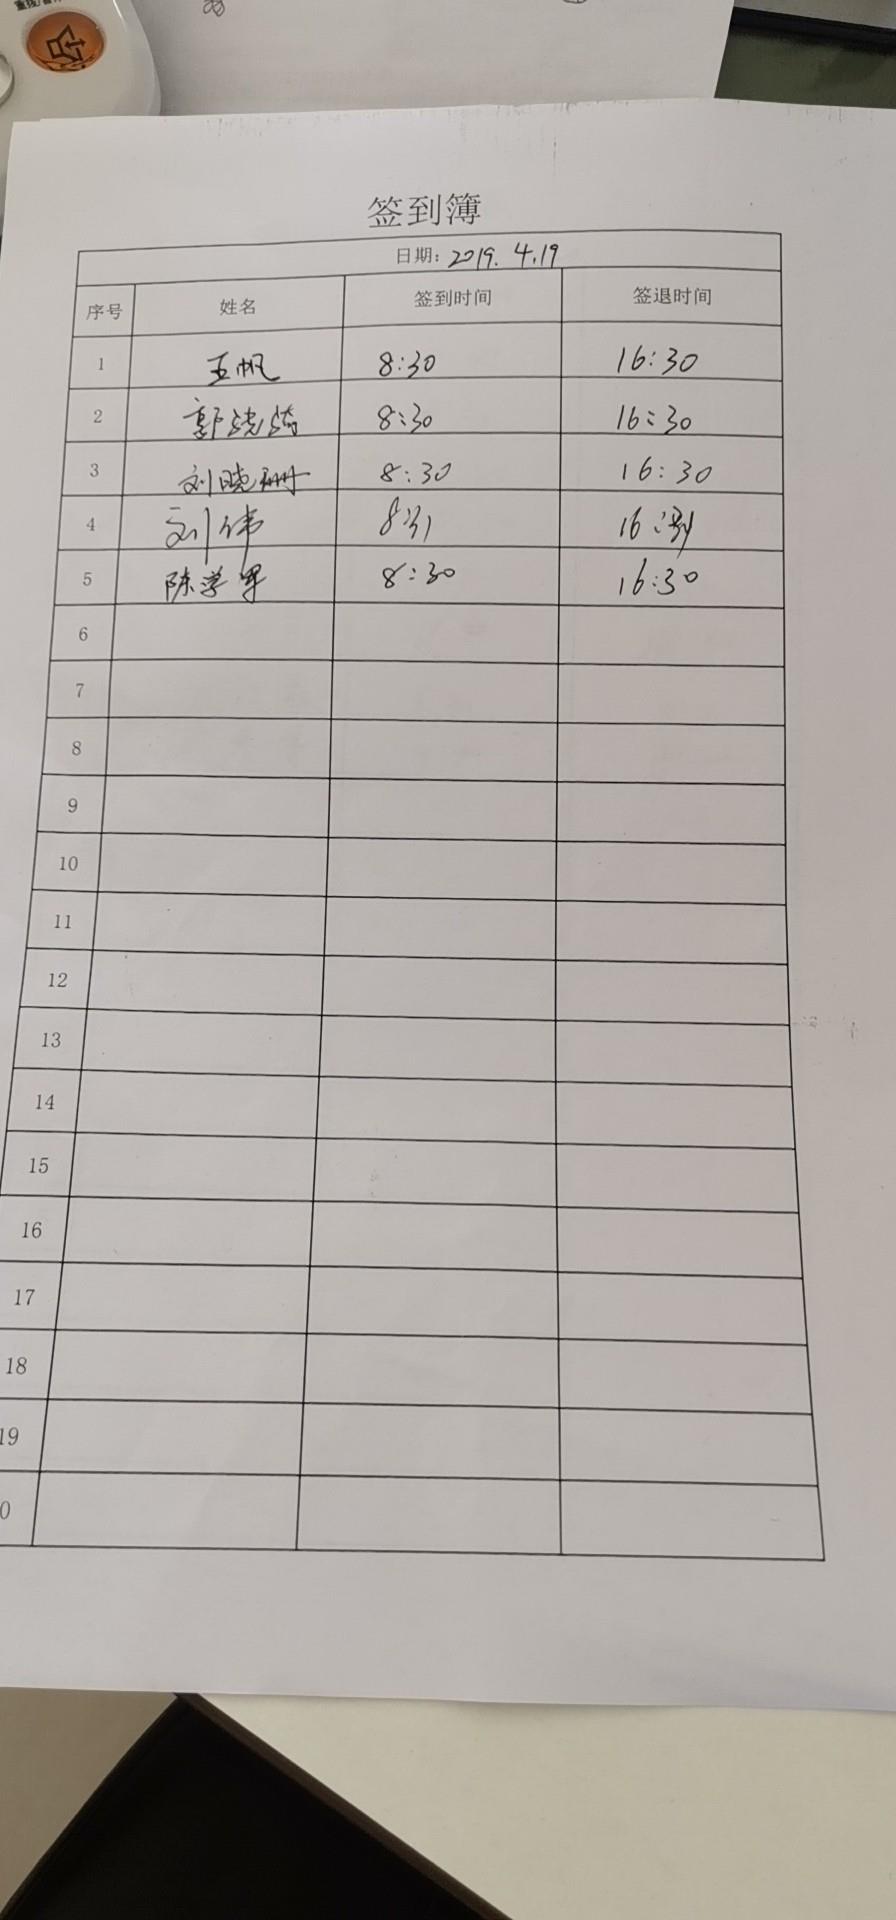 签到簿
日期: 2019. 4.19
序号 姓名 签到时间 签退时间
1 王帆 8:30 16:30
2 郭 8:30 16:30
3 刘晓珊 8:30 16:30
4 刘伟 8:31 16:
5 陈学军 8:30 16:30
6
7
8
9
10
11
12
13
14
15
16
17
18
19
0